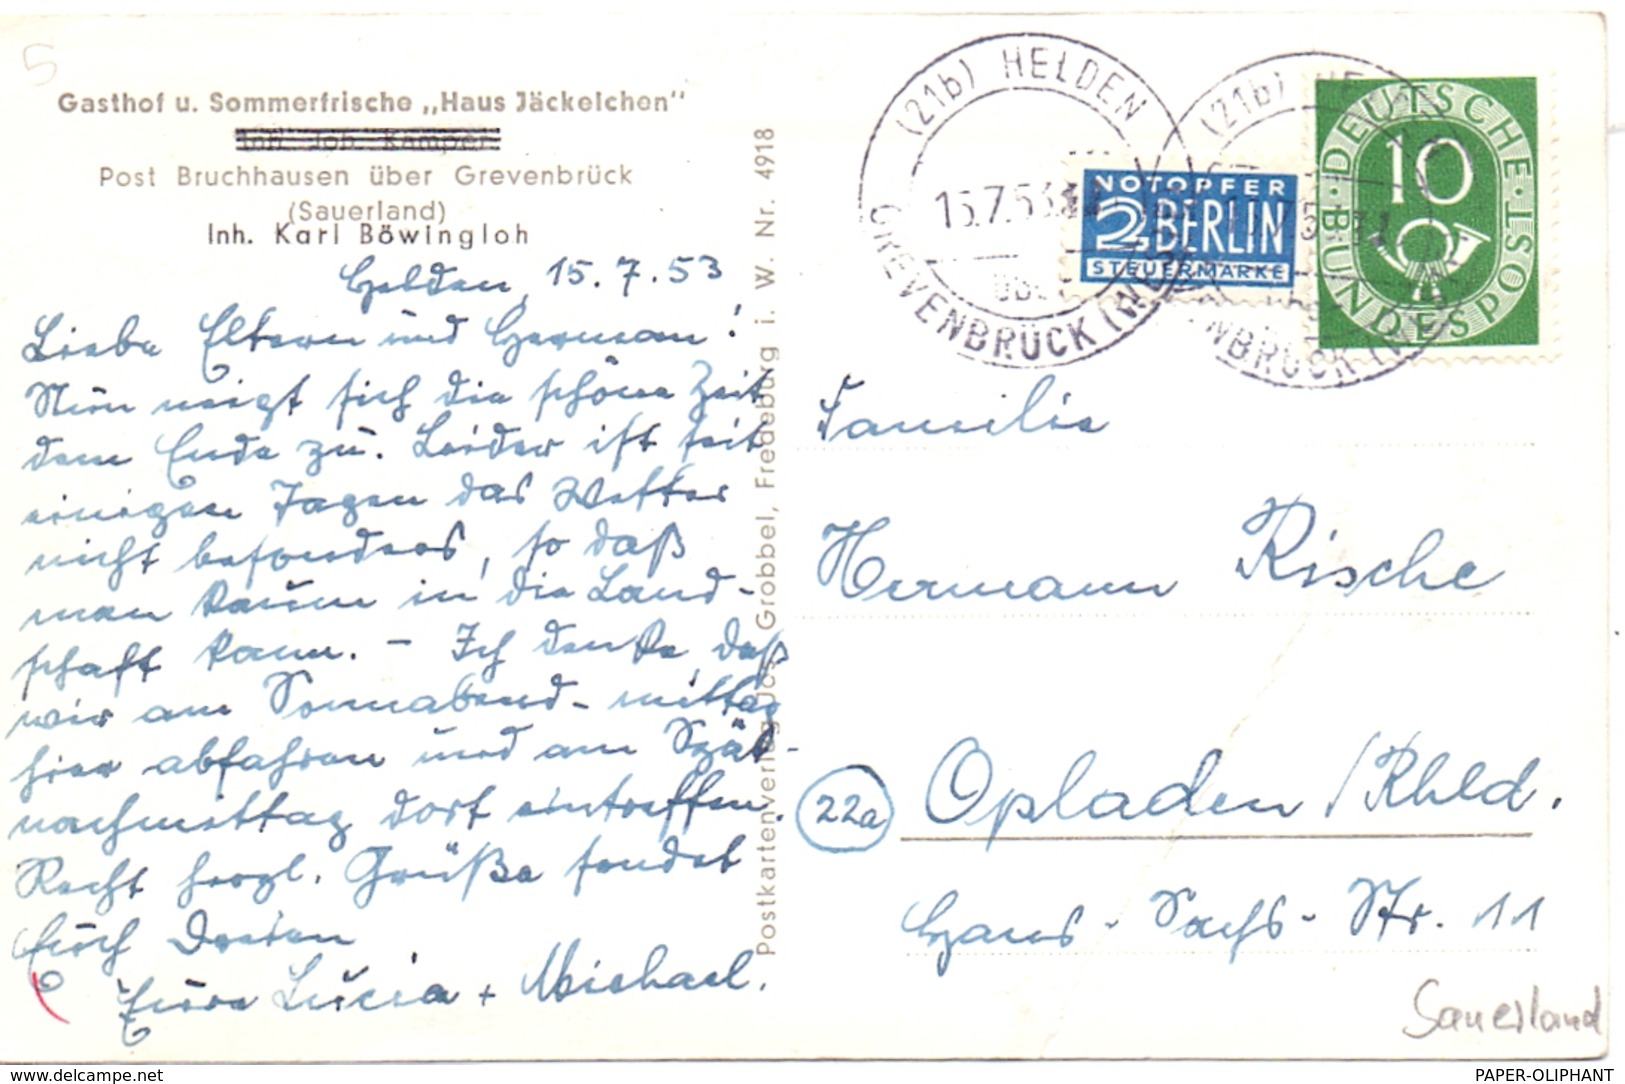 5
Gasthof u. Sommerfrische „Haus Jäckelchen"
Inh. Joh. Kämper
Post Bruchhausen über Grevenbrück
(Sauerland)
Inh. Karl Böwingloh
Helden, 15.7.53
Liebe Eltern und Herman!
Nun neigt sich die schöne Zeit
dem Ende zu. Leider ist seit
einigen Tagen das Wetter
nicht besonders, so daß
man kaum in die Land-
schaft kann. – Ich denke, daß
wir am Sonnabend-mittag
hier abfahren und am Spät-
nachmittag dort eintreffen.
Recht herzl. Grüße sendet
Euch
Eure Lucia + Michael.
Postkartenverlag Jos. Grobbel, Fredeburg i. W. Nr. 4918
(21b) HELDEN
15.7.53
ÜBER
GREVENBRÜCK (WESTF
(21b) HELDEN
NOTOPFER
2 BERLIN
STEUERMARKE
DEUTSCHE
BUNDESPOST
10
Familie
Hermann Rische
22a
Opladen/Rhld.
Hans-Sachs-Str. 11
Sauerland
PAPER-OLIPHANT